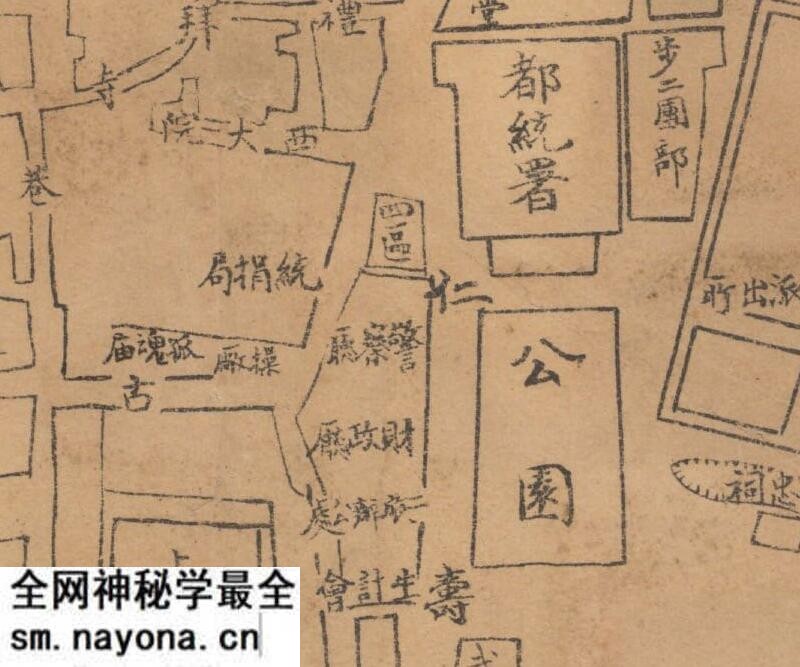 堂
禮拜寺
都統署
步二團部
西大
院
巷
四區
統捐局
派出所
孤魂庙
操厰
警察廳
古
公園
財政廳
忠祠
生計會
壽
全网神秘学最全
sm.nayona.cn